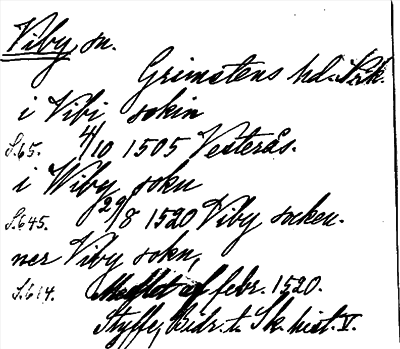 Viby, sn.
Grimstens hd.
i Vibi sokin
S.65. 4/10 1505 Vesterås.
i Wiby sokn
S.645. 29/8 1520 Viby socken.
ner Viby sokn,
S.614. af febr. 1520.
Styffe, Bidr. t. Sk. hist. V.